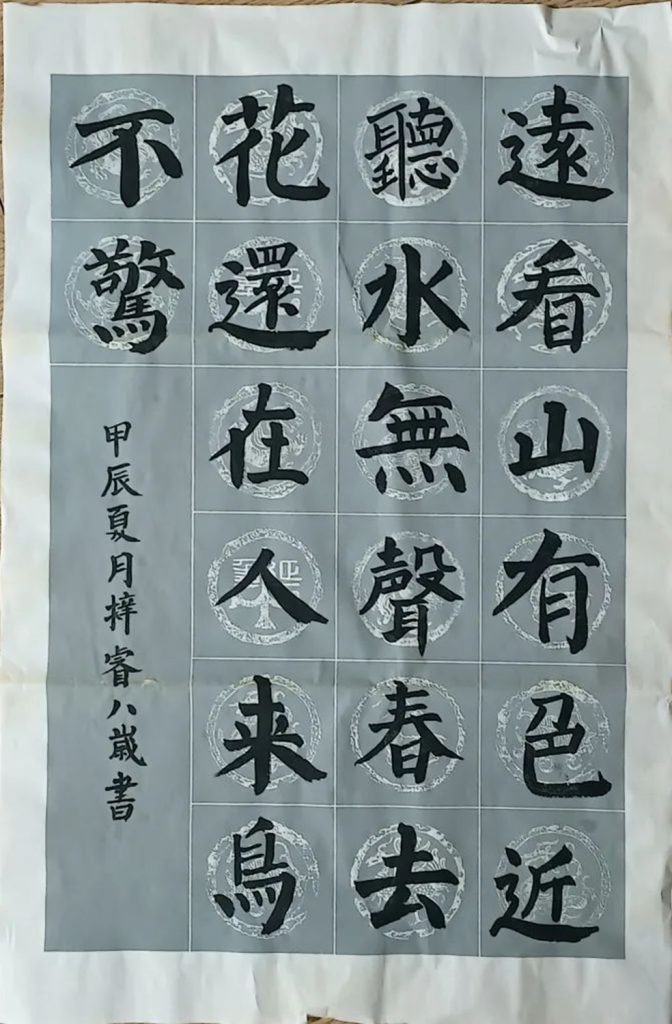 遠看山有色近
聽水無聲春去
花還在人来鳥
不驚
甲辰夏月梓睿八歲書